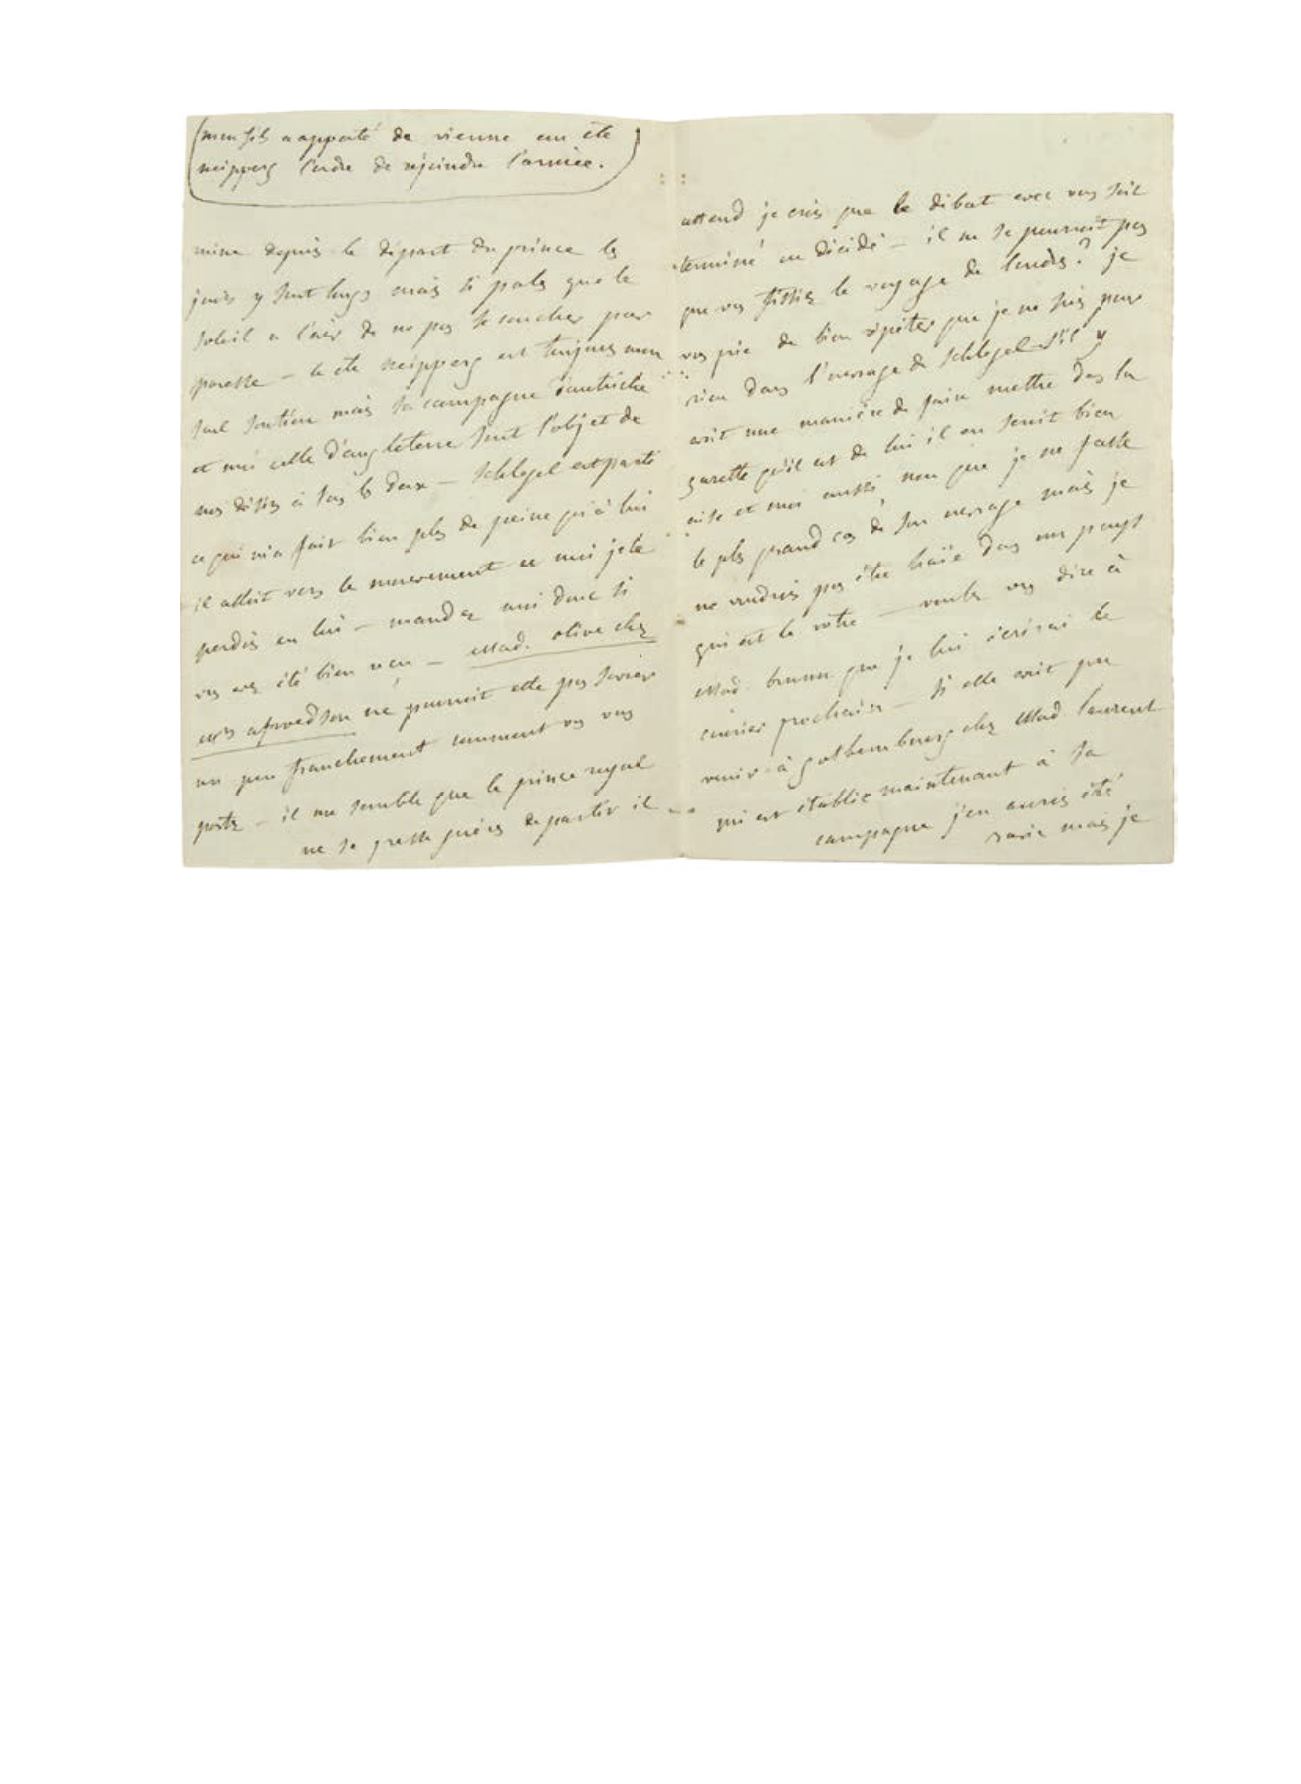 (mon fils a apporté de vienne au cte
neipperg l'ordre de rejoindre l'armée.)
mine depuis le départ du prince les
jours y sont longs mais si pales que le
soleil a l'air de ne pas se coucher par
paresse – le cte neipperg est toujours mon
seul soutien mais sa campagne d'autriche
et moi celle d'angleterre sont l'objet de
nos désirs à tous les deux – schlegel est parti
ce qui m'a fait bien plus de peine qu'à lui
il alloit vers le mouvement et moi je le
perdois en lui – mandez moi donc si
vous avez été bien vu – Mad. olive chez
afwedson ne pourroit elle pas savoir
un peu franchement comment vous vous
portez – il me semble que le prince royal
ne se presse guères de partir il
attend je crois que le débat avec vous soit
terminé ou décidé – il ne se pourroit pas
que vous fissiez le voyage de londres? je
vous prie de bien répéter que je ne suis pour
rien dans l'ouvrage de schlegel s'il y
avoit une manière de faire mettre dans la
gazette qu'il est de lui il en seroit bien
aise et moi aussi, non que je ne fasse
le plus grand cas de son ouvrage mais je
ne voudrois pas être haïe dans mon pays
qui est le votre – voulez vous dire à
Mad. brunn que je lui écrirai le
courier prochain – si elle avoit pu
venir à gothembourg chez Mad. laurent
qui est établie maintenant à sa
campagne j'en aurois été
ravie mais je